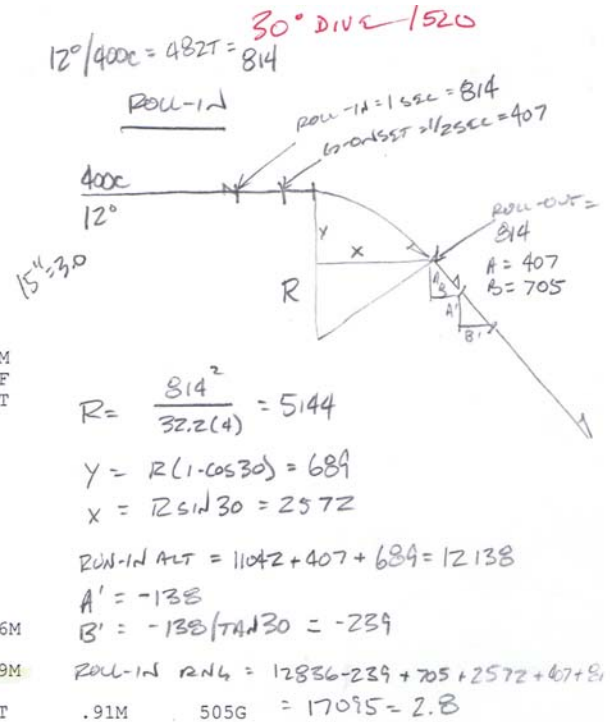 30° DIVE /520
12°/400C = 482T = 814
ROLL-IN
ROLL-IN = 1 SEC = 814
G-ONSET = 1/2 SEC = 407
400C
12°
ROLL-OUT =
814
A = 407
B = 705
15" = 3.0
Y
X
R
A
B
A'
B'
M
F
T
R = 814² / 32.2(4) = 5144
Y = R(1-COS30) = 689
X = R SIN 30 = 2572
RUN-IN ALT = 11042 + 407 + 689 = 12138
A' = -138
6M
B' = -138/TAN30 = -239
9M
ROLL-IN RNG = 12836 - 239 + 705 + 2572 + 407 + 81
T .91M 505G = 17095 = 2.8